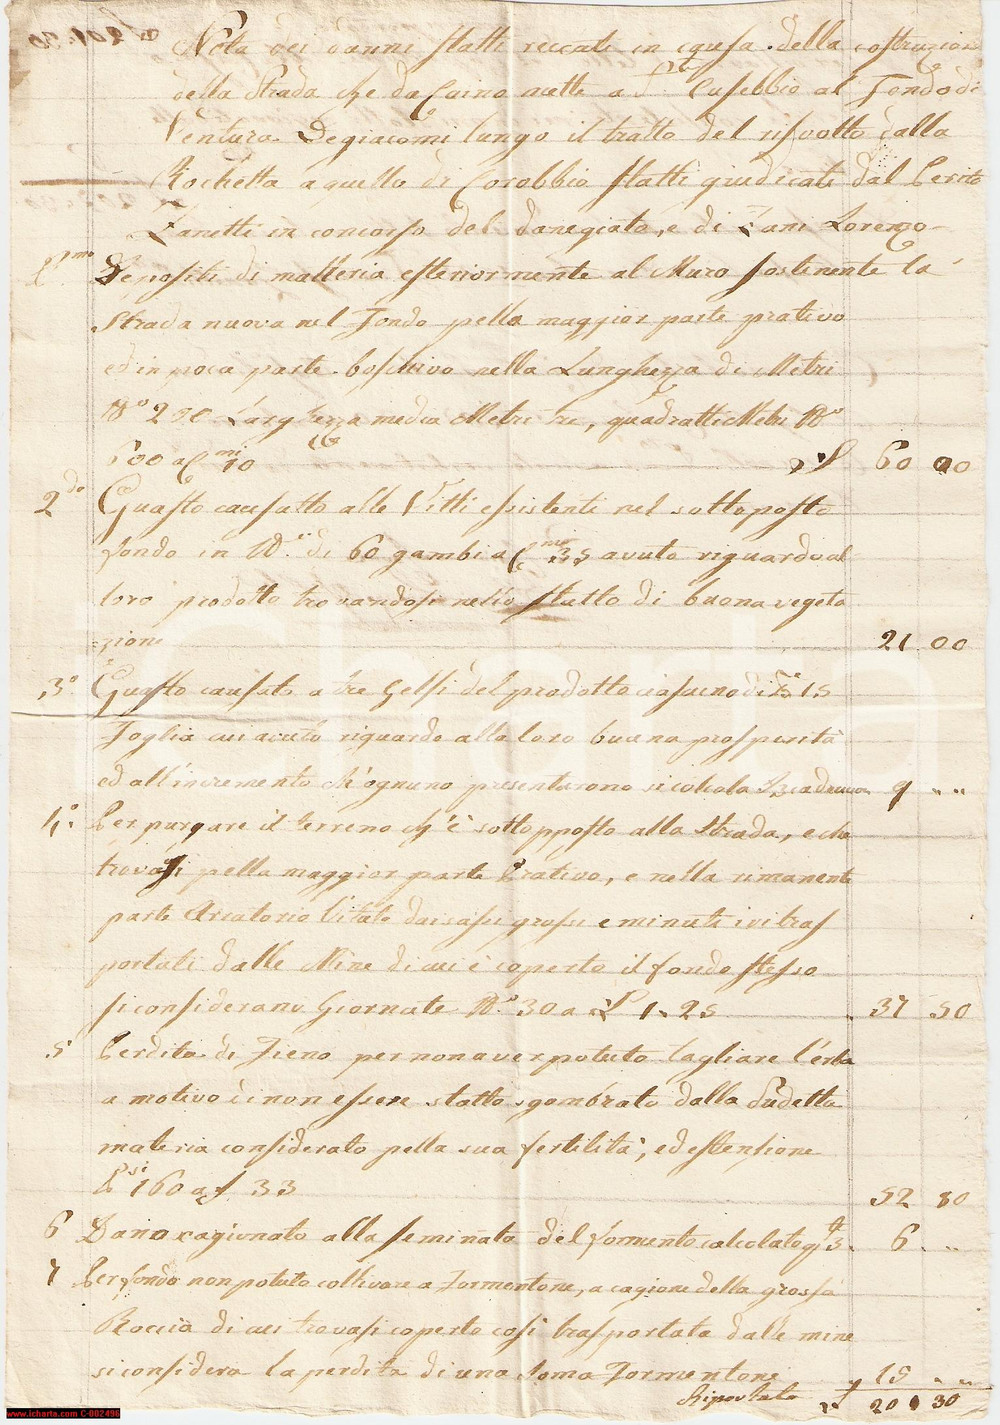 Nota dei danni statti reccati in causa della costruzion
della Strada che da Caino mette a S.t Eusebbio al Fondo di
Ventura Degiacomi lungo il tratto del risvolto dalla
Rochetta a quello di Corobbio statti giudicati dal Perito
Zanetti in concorso del danegiato, e di Zani Lorenzo
P.mo Depositi di matteria esteriormente al Muro sostenente la
Strada nuova nel Fondo pella maggior parte prativo
ed in poca parte boschivo nella Lunghezza di Metri
N.o 200 Larghezza media Metri tre, quadratti Metri N.o
600 a C.mi 10 £ 60 00
2.do Guasto causatto alle Vitti essistenti nel sottoposto
fondo in N.o di 60 gambi a C.mi 35 avuto riguardo al
loro prodotto trovandosi nello statto di buona vegeta
zione 21.00
3.o Guasto causato a tre Gelsi del prodotto ciascuno di P.si 15
Foglia cui avuto riguardo alla loro buona prosperità
ed all'incremento ch'ognuno presentarono si colcola £ 3 caduno 9 " "
4.o Per purgare il terreno ch'è sottopposto alla Strada, e che
trovasi pella maggior parte Prativo, e nella rimanente
parte Aratorio Vitato dai sassi grossi e minuti ivi tras
portati dalle Mine di cui è coperto il fondo stesso
si considerano Giornate N.o 30 a £ 1.25 37.50
5.o Perdita di Fieno per non aver potuto tagliare l'erba
a motivo di non essere statto sgombrato dalla sudetta
materia considerato pella sua fertilità, ed estensione
P.si 160 a £ 33 52 80
6 Dano cagionato alla seminata del formento calcolato 6. "
7 Per fondo non potuto coltivare a Formentone, a cagione della grossa
Roccia di cui trovasi coperto così trasportata dalle mine
si considera la perdita di una soma Formentone 15 " "
Riportato £ 201 30
www.icharta.com C-002496